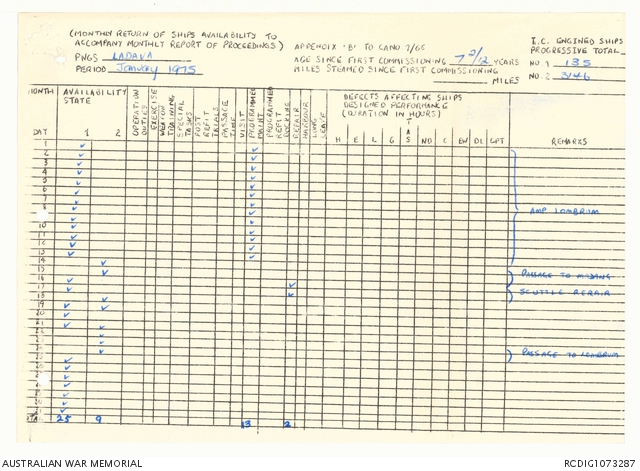 (MONTHLY RETURN OF SHIPS AVAILABILITY TO
ACCOMPANY MONTHLY REPORT OF PROCEEDINGS) APPENDIX 'B' TO CANO 7/66
PNGS LADAVA
PERIOD January 1975
AGE SINCE FIRST COMMISSIONING 7 2/12 YEARS
MILES STEAMED SINCE FIRST COMMISSIONING
MILES
I.C. ENGINED SHIPS
PROGRESSIVE TOTAL
NO. 1 135
NO. 2 3146
MONTH AVAILABILITY STATE
OPERATION DUTIES
EXERCISE
WEAPON TRAINING
SPECIAL TASKS
POST REFIT TRIALS
PASSAGE TIME
VISIT
PROGRAMMED MAINT
PROGRAMMED REFIT
DOCKING
REPAIR
HARBOUR
LONG LEAVE
DEFECTS AFFECTING SHIPS
DESIGNED PERFORMANCE
(DURATION IN HOURS)
DAY 1 2 H E L G TAS ND C EW DL CPT REMARKS
1
2
3
4
5
6
7
8 AMP LOMBRUM
10
11
12
13
14
15 PASSAGE TO MADANG
16
17 SCUTTLE REPAIR
18
19
20
21
PASSAGE TO LOMBRUM
25 9 13 2
AUSTRALIAN WAR MEMORIAL RCDIG1073287